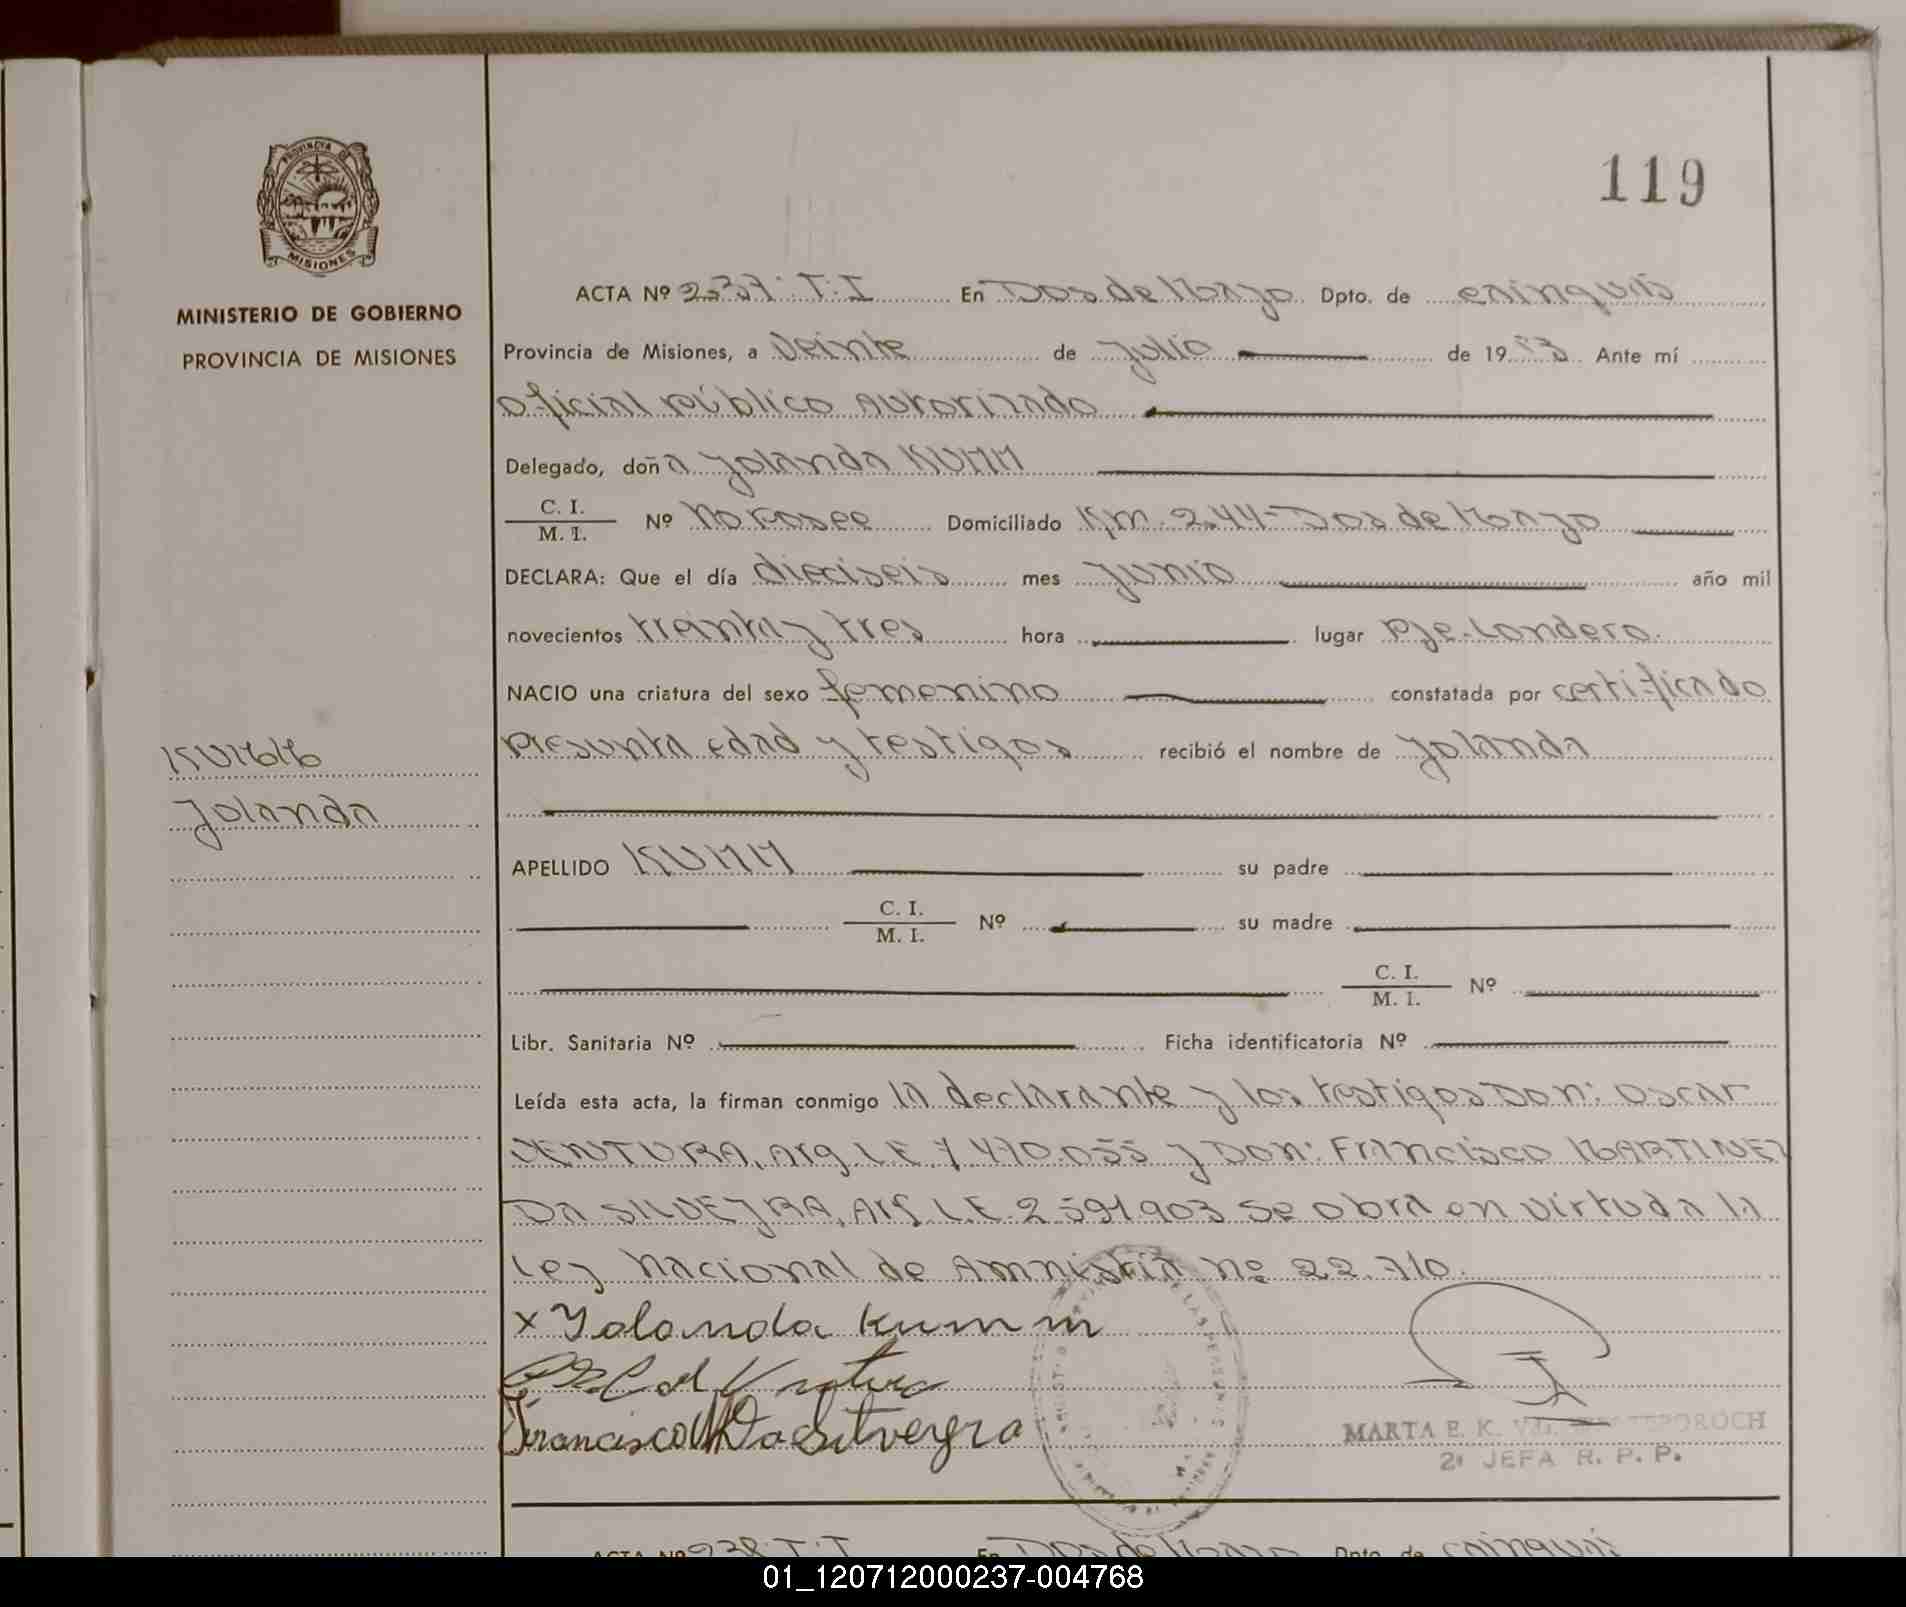 119
PROVINCIA DE
MISIONES
MINISTERIO DE GOBIERNO
PROVINCIA DE MISIONES
ACTA Nº 237. T. I En Dos de Mayo Dpto. de cainguás
Provincia de Misiones, a Veinte de Julio de 1983 Ante mí
oficial público autorizado
Delegado, doña Yolanda KUMM
C. I.
M. I. Nº No Posee Domiciliado Km. 244-Dos de Mayo
DECLARA: Que el día dieciseis mes Junio año mil
novecientos treinta y tres hora lugar Pje. Londero.
NACIO una criatura del sexo femenino constatada por certificado
presunta edad y testigos recibió el nombre de Yolanda
KUMM
Yolanda
APELLIDO KUMM su padre
C. I.
M. I. Nº su madre
C. I.
M. I. Nº
Libr. Sanitaria Nº Ficha identificatoria Nº
Leída esta acta, la firman conmigo la declarante y los testigos Don: Oscar
VENTURA, Arg. L.E 7.470.055 y Don: Francisco MARTINEZ
Da SILVEYRA, Arg. L.E. 2.591.903 Se obra en virtud a la
Ley Nacional de Amnistia nº 22.710.
x Yolanda Kumm
Francisco M Da Silveyra
MARTA E. K.
2ª JEFA R. P. P.
ACTA Nº 238. T. I En Dos de Mayo Dpto. de cainguás
01_120712000237-004768